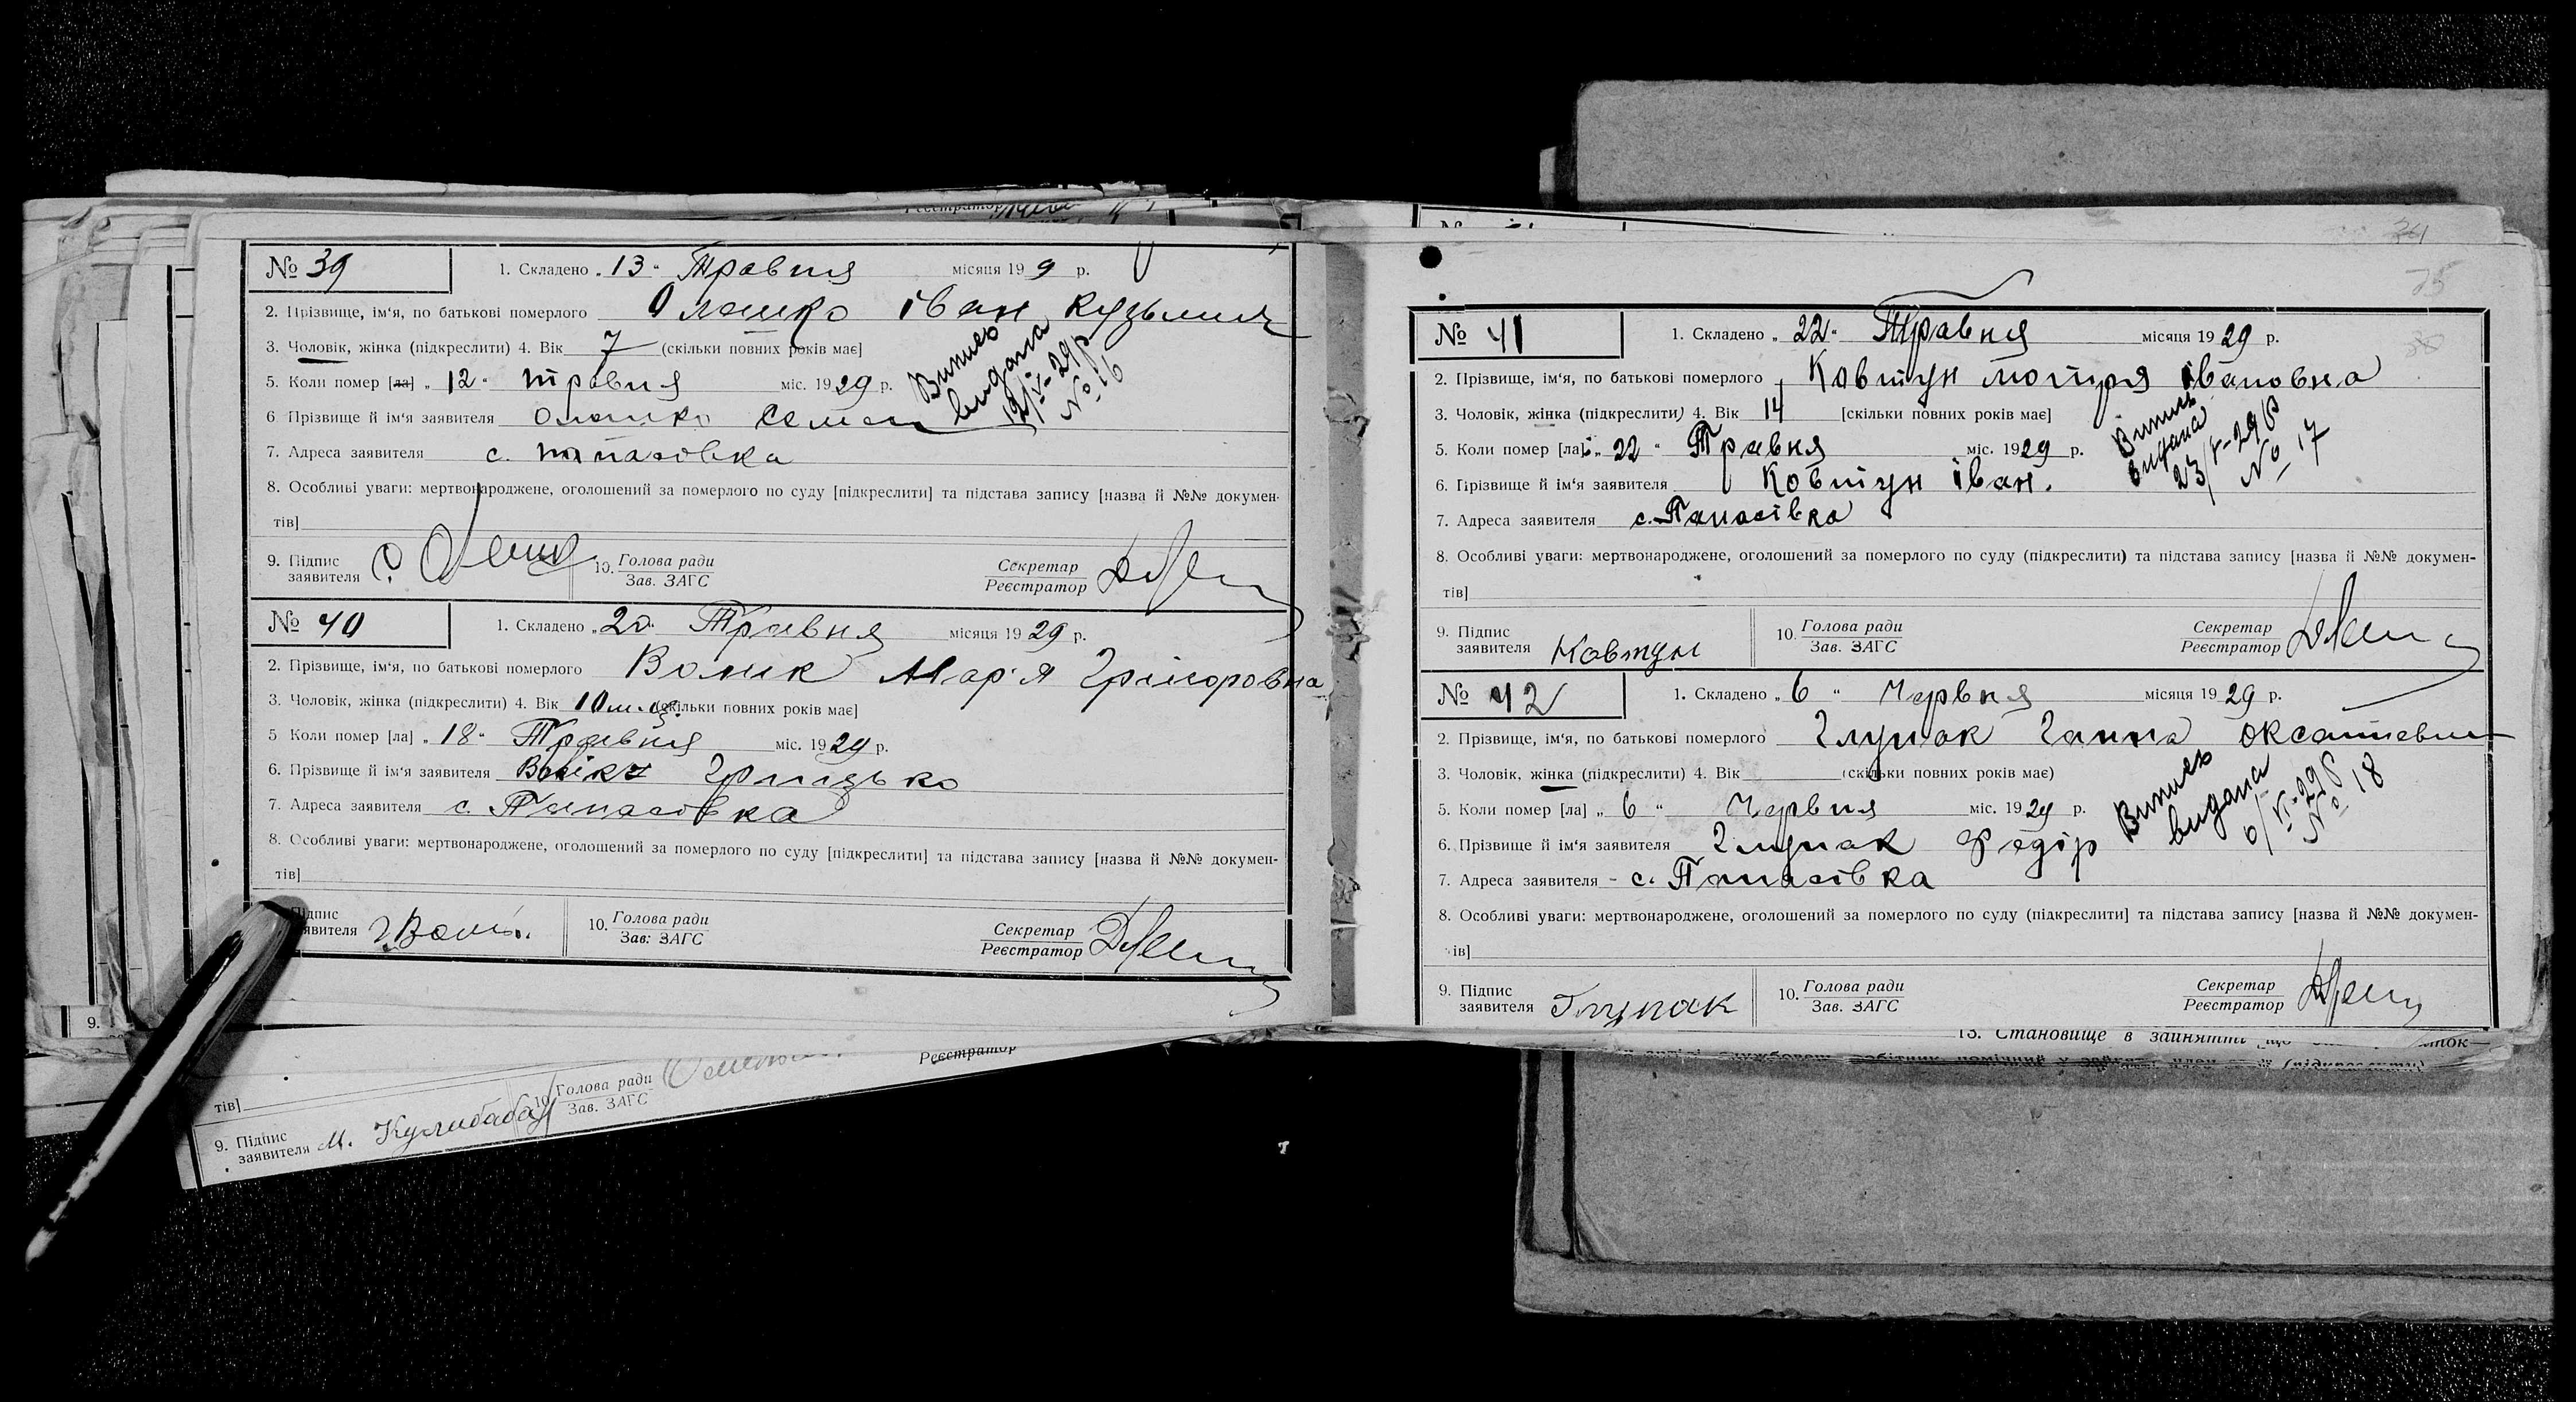 № 39
1. Складено „ 13 “ Травня місяця 19 9 р.
2. Прізвище, ім‘я, по батькові померлого Олешко іван Кузьмич
3. Чоловік, жінка (підкреслити) 4. Вік 7 (скільки повних років має]
5. Коли помер [ла] „ 12 “ травня міс. 19 29 р.
Випись
видана
№ 16
6 Прізвище й ім‘я заявителя Олешко Семен
7. Адреса заявителя с.
8. Особливі уваги: мертвонароджене, оголошений за померлого по суду [підкреслити] та підстава запису [назва й №№ докумен-
тів]
9. Підпис
заявителя
10. Голова ради
Зав. ЗАГС
Секретар
Реєстратор
№ 40
1. Складено „ 20 “ Травня місяця 19 29 р.
2. Прізвище, ім‘я, по батькові померлого Волик Мар‘я Грігоровна
3. Чоловік, жінка (підкреслити) 4. Вік 10 (скільки повних років має]
5 Коли помер [ла] „ 18 “ Травня міс. 19 29 р.
6. Прізвище й ім‘я заявителя Грицько
7. Адреса заявителя с. Панасовка
8. Особливі уваги: мертвонароджене, оголошений за померлого по суду [підкреслити] та підстава запису [назва й №№ докумен-
тів]
Підпис
заявителя
10. Голова ради
Зав: ЗАГС
Секретар
Реєстратор
тів]
9. Підпис
заявителя М. Кулибаба
10. Голова ради
Зав. ЗАГС
Реєстратор
75
№ 41
1. Складено „ 22 “ Травня місяця 19 29 р.
2. Прізвище, ім‘я, по батькові померлого Ковтун мотря івановна
3. Чоловік, жінка (підкреслити) 4. Вік 14 [скільки повних років має]
5. Коли помер [ла] „ 22 “ Травня міс. 19 29 р.
Випись
видана
23/V-29 р
№ 17
6. Прізвище й ім‘я заявителя Ковтун іван.
7. Адреса заявителя с. Панасівка
8. Особливі уваги: мертвонароджене, оголошений за померлого по суду (підкреслити) та підстава запису [назва й №№ докумен-
тів]
9. Підпис
заявителя Ковтун
10. Голова ради
Зав. ЗАГС
Секретар
Реєстратор
№ 42
1. Складено „ 6 “ Червня місяця 19 29 р.
2. Прізвище, ім‘я, по батькові померлого Глупак Ганна
3. Чоловік, жінка (підкреслити) 4. Вік (скільки повних років має)
5. Коли помер [ла] „ 6 “ Червня міс. 19 29 р.
Випись
видана
6/VI-29 р
№ 18
6. Прізвище й ім‘я заявителя Глупак Федір
7. Адреса заявителя - с. Панасівка
8. Особливі уваги: мертвонароджене, оголошений за померлого по суду (підкреслити] та підстава запису [назва й №№ докумен-
ів]
9. Підпис
заявителя Глупак
10. Голова ради
Зав. ЗАГС
Секретар
Реєстратор
13. Становище в